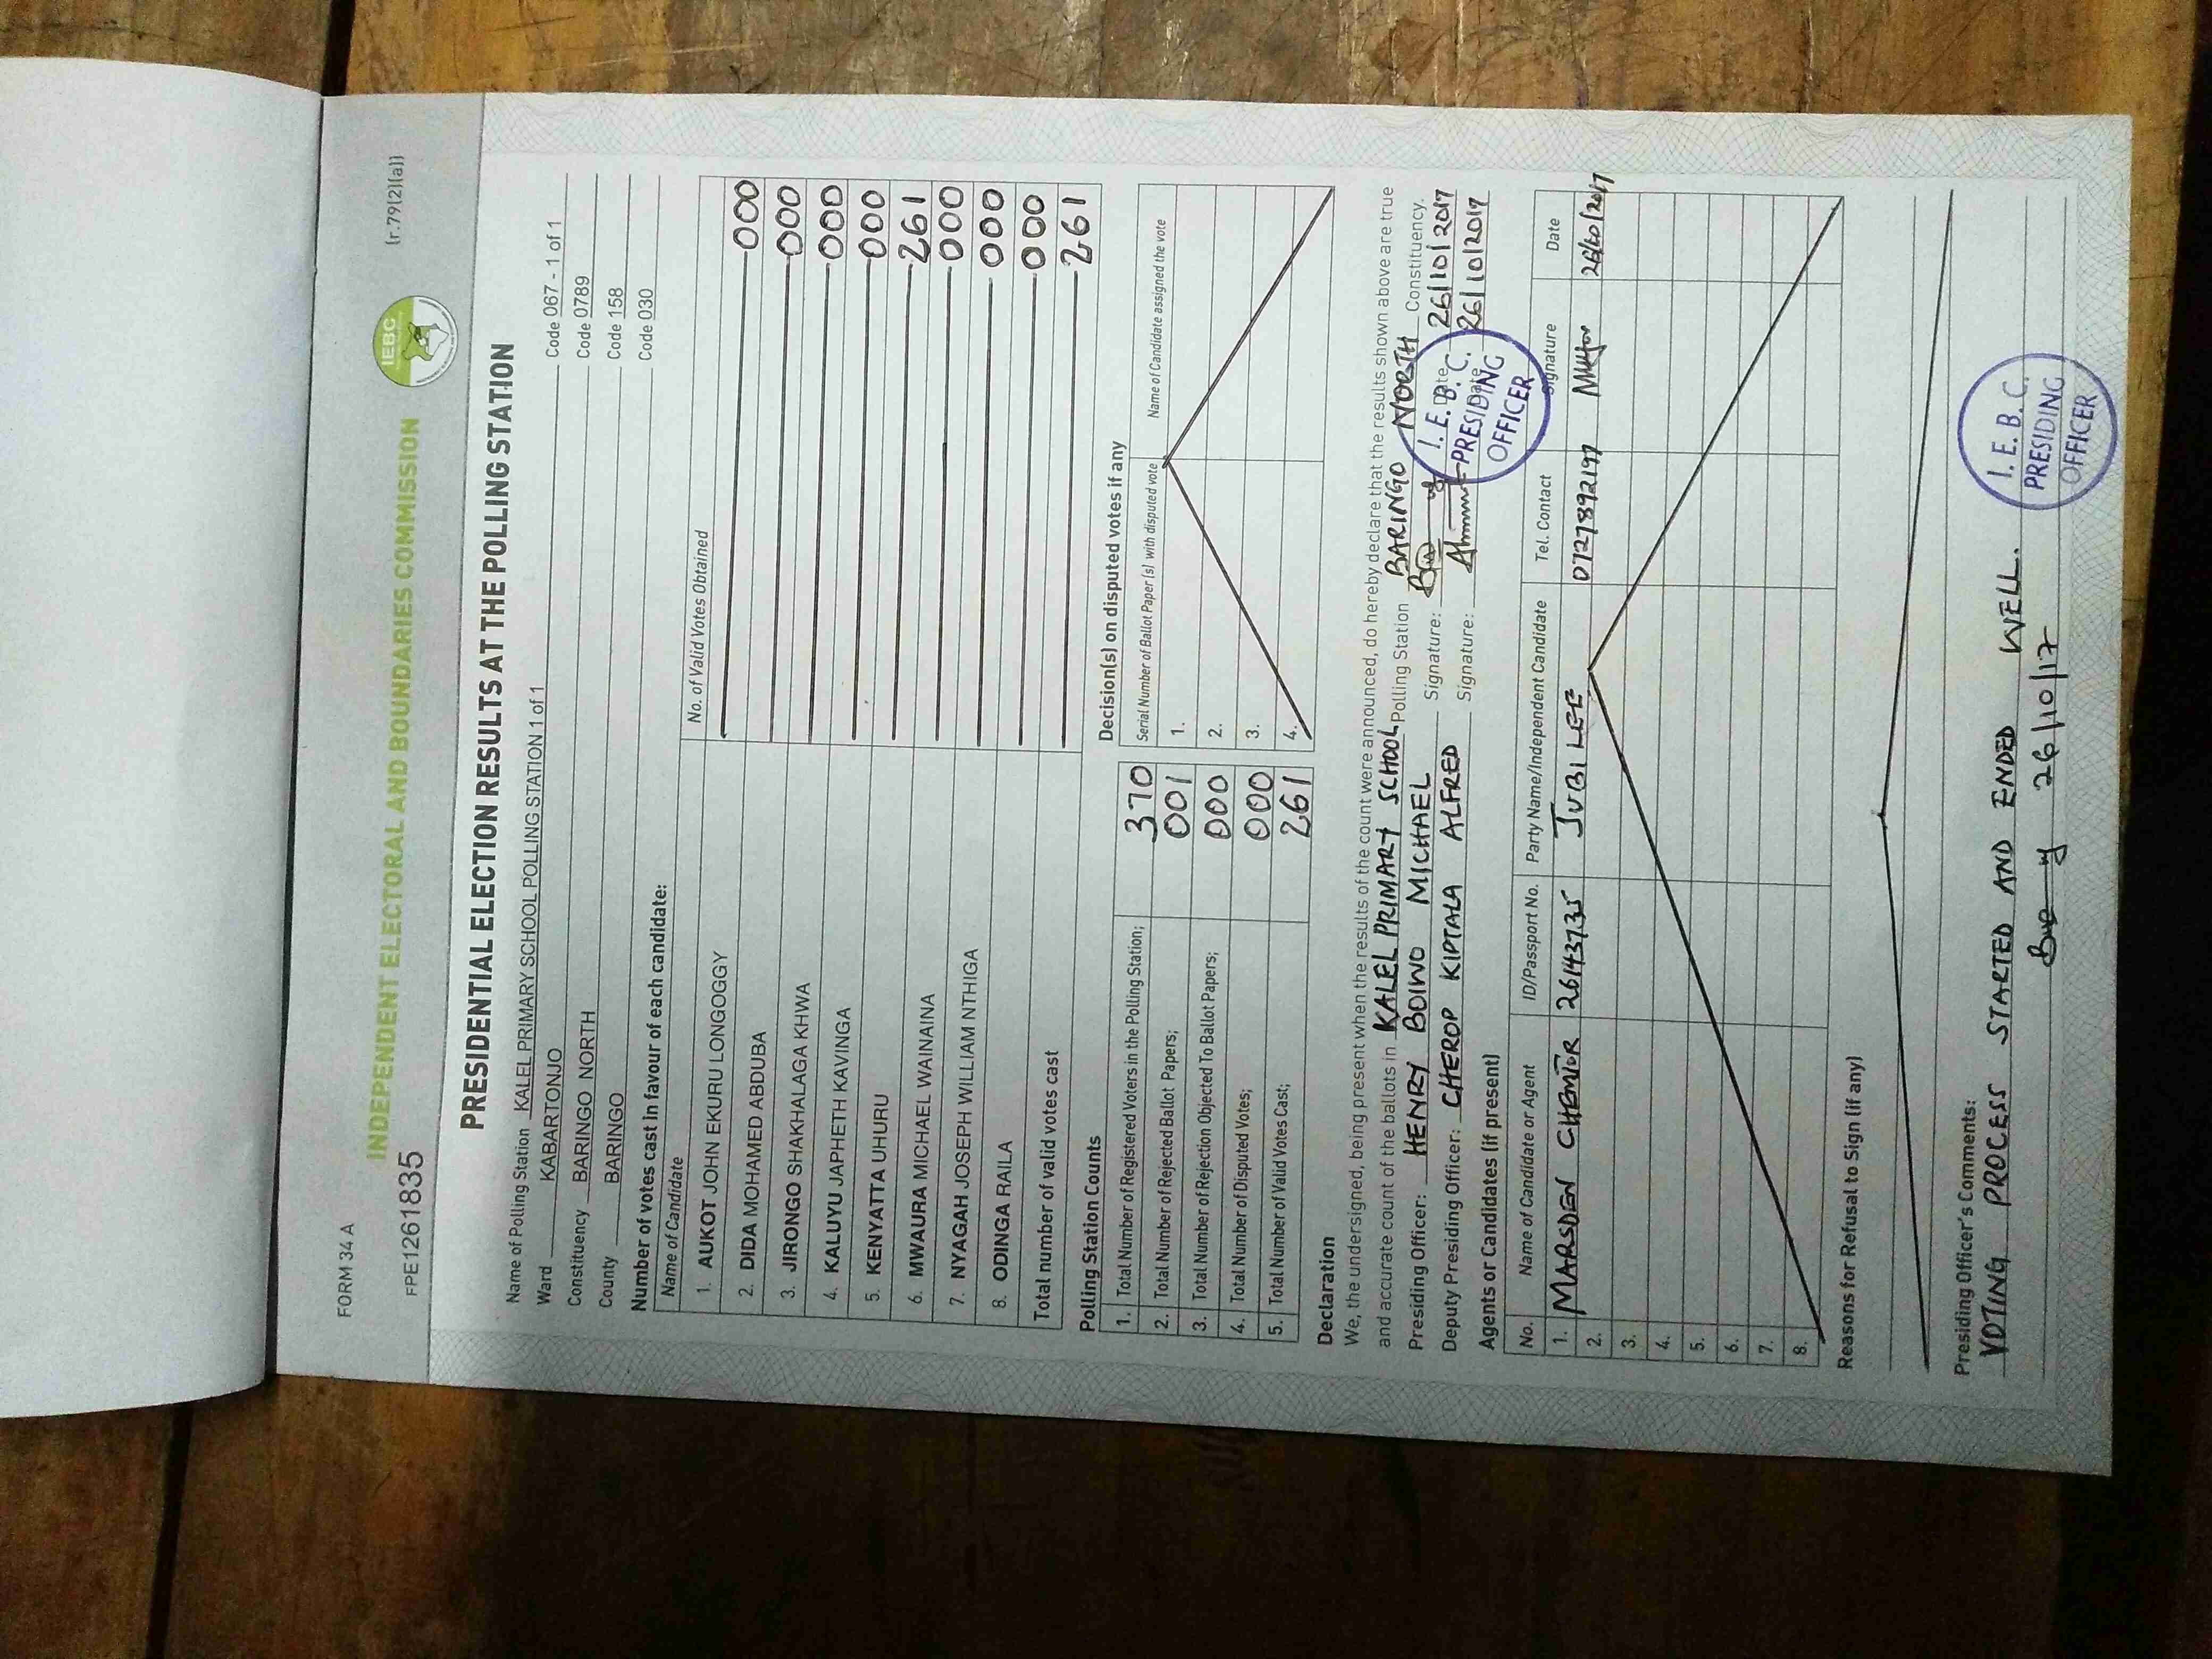 FORM 34 A
(r.79(2)(a))
INDEPENDENT ELECTORAL AND BOUNDARIES COMMISSION
IEBC
FPE1261835
PRESIDENTIAL ELECTION RESULTS AT THE POLLING STATION
Name of Polling Station KALEL PRIMARY SCHOOL POLLING STATION 1 of 1 Code 067 - 1 of 1
Ward KABARTONJO Code 0789
Constituency BARINGO NORTH Code 158
County BARINGO Code 030
Number of votes cast in favour of each candidate:
Name of Candidate No. of Valid Votes Obtained
1. AUKOT JOHN EKURU LONGOGGY 000
2. DIDA MOHAMED ABDUBA 000
3. JIRONGO SHAKHALAGA KHWA 000
4. KALUYU JAPHETH KAVINGA 000
5. KENYATTA UHURU 261
6. MWAURA MICHAEL WAINAINA 000
7. NYAGAH JOSEPH WILLIAM NTHIGA 000
8. ODINGA RAILA 000
Total number of valid votes cast 261
Polling Station Counts
1. Total Number of Registered Voters in the Polling Station; 370
2. Total Number of Rejected Ballot Papers; 001
3. Total Number of Rejection Objected To Ballot Papers; 000
4. Total Number of Disputed Votes; 000
5. Total Number of Valid Votes Cast; 261
Decision(s) on disputed votes if any
Serial Number of Ballot Paper(s) with disputed vote Name of Candidate assigned the vote
1.
2.
3.
4.
Declaration
We, the undersigned, being present when the results of the count were announced, do hereby declare that the results shown above are true
and accurate count of the ballots in KALEL PRIMARY SCHOOL Polling Station BARINGO NORTH Constituency.
Presiding Officer: HENRY BOIWO MICHAEL Signature: Date 26/10/2017
Deputy Presiding Officer: CHEROP KIPTALA ALFRED Signature: Date 26/10/2017
I. E. B. C.
PRESIDING
OFFICER
Agents or Candidates (if present)
No. Name of Candidate or Agent ID/Passport No. Party Name/Independent Candidate Tel. Contact Signature Date
1. MARSDEN CHEMTOR 26143735 JUBILEE 0727892197 26/10/2017
2.
3.
4.
5.
6.
7.
8.
Reasons for Refusal to Sign (if any)
Presiding Officer's Comments:
VOTING PROCESS STARTED AND ENDED WELL.
26/10/17
I. E. B. C.
PRESIDING
OFFICER